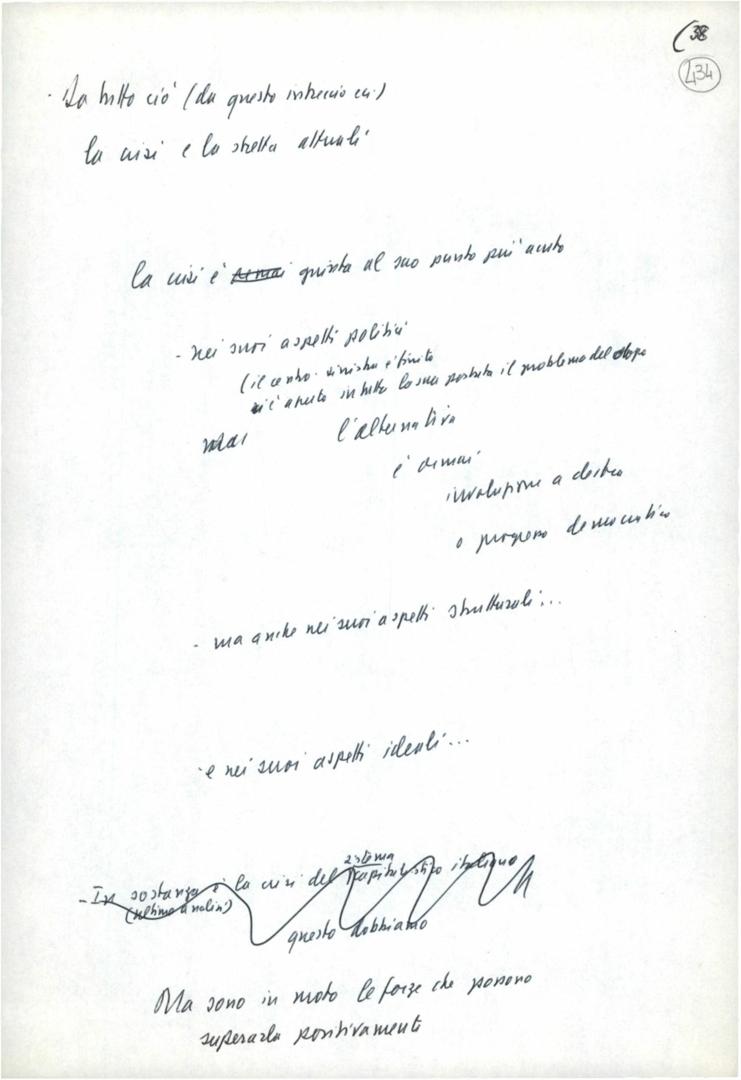 (38
434
- Da tutto ciò (da questo intreccio ecc.)
la crisi e la stretta attuali
la crisi è ormai giunta al suo punto più acuto
- nei suoi aspetti politici
(il centro-sinistra è finito
si è aperto in tutta la sua portata il problema del dopo
l'alternativa
è ormai
involuzione a destra
o progresso democratico
- ma anche nei suoi aspetti strutturali...
- e nei suoi aspetti ideali...
sistema
- In sostanza è la crisi del capitalistico italiano
(ultima analisi)
questo dobbiamo
Ma sono in moto le forze che possono
superarla positivamente